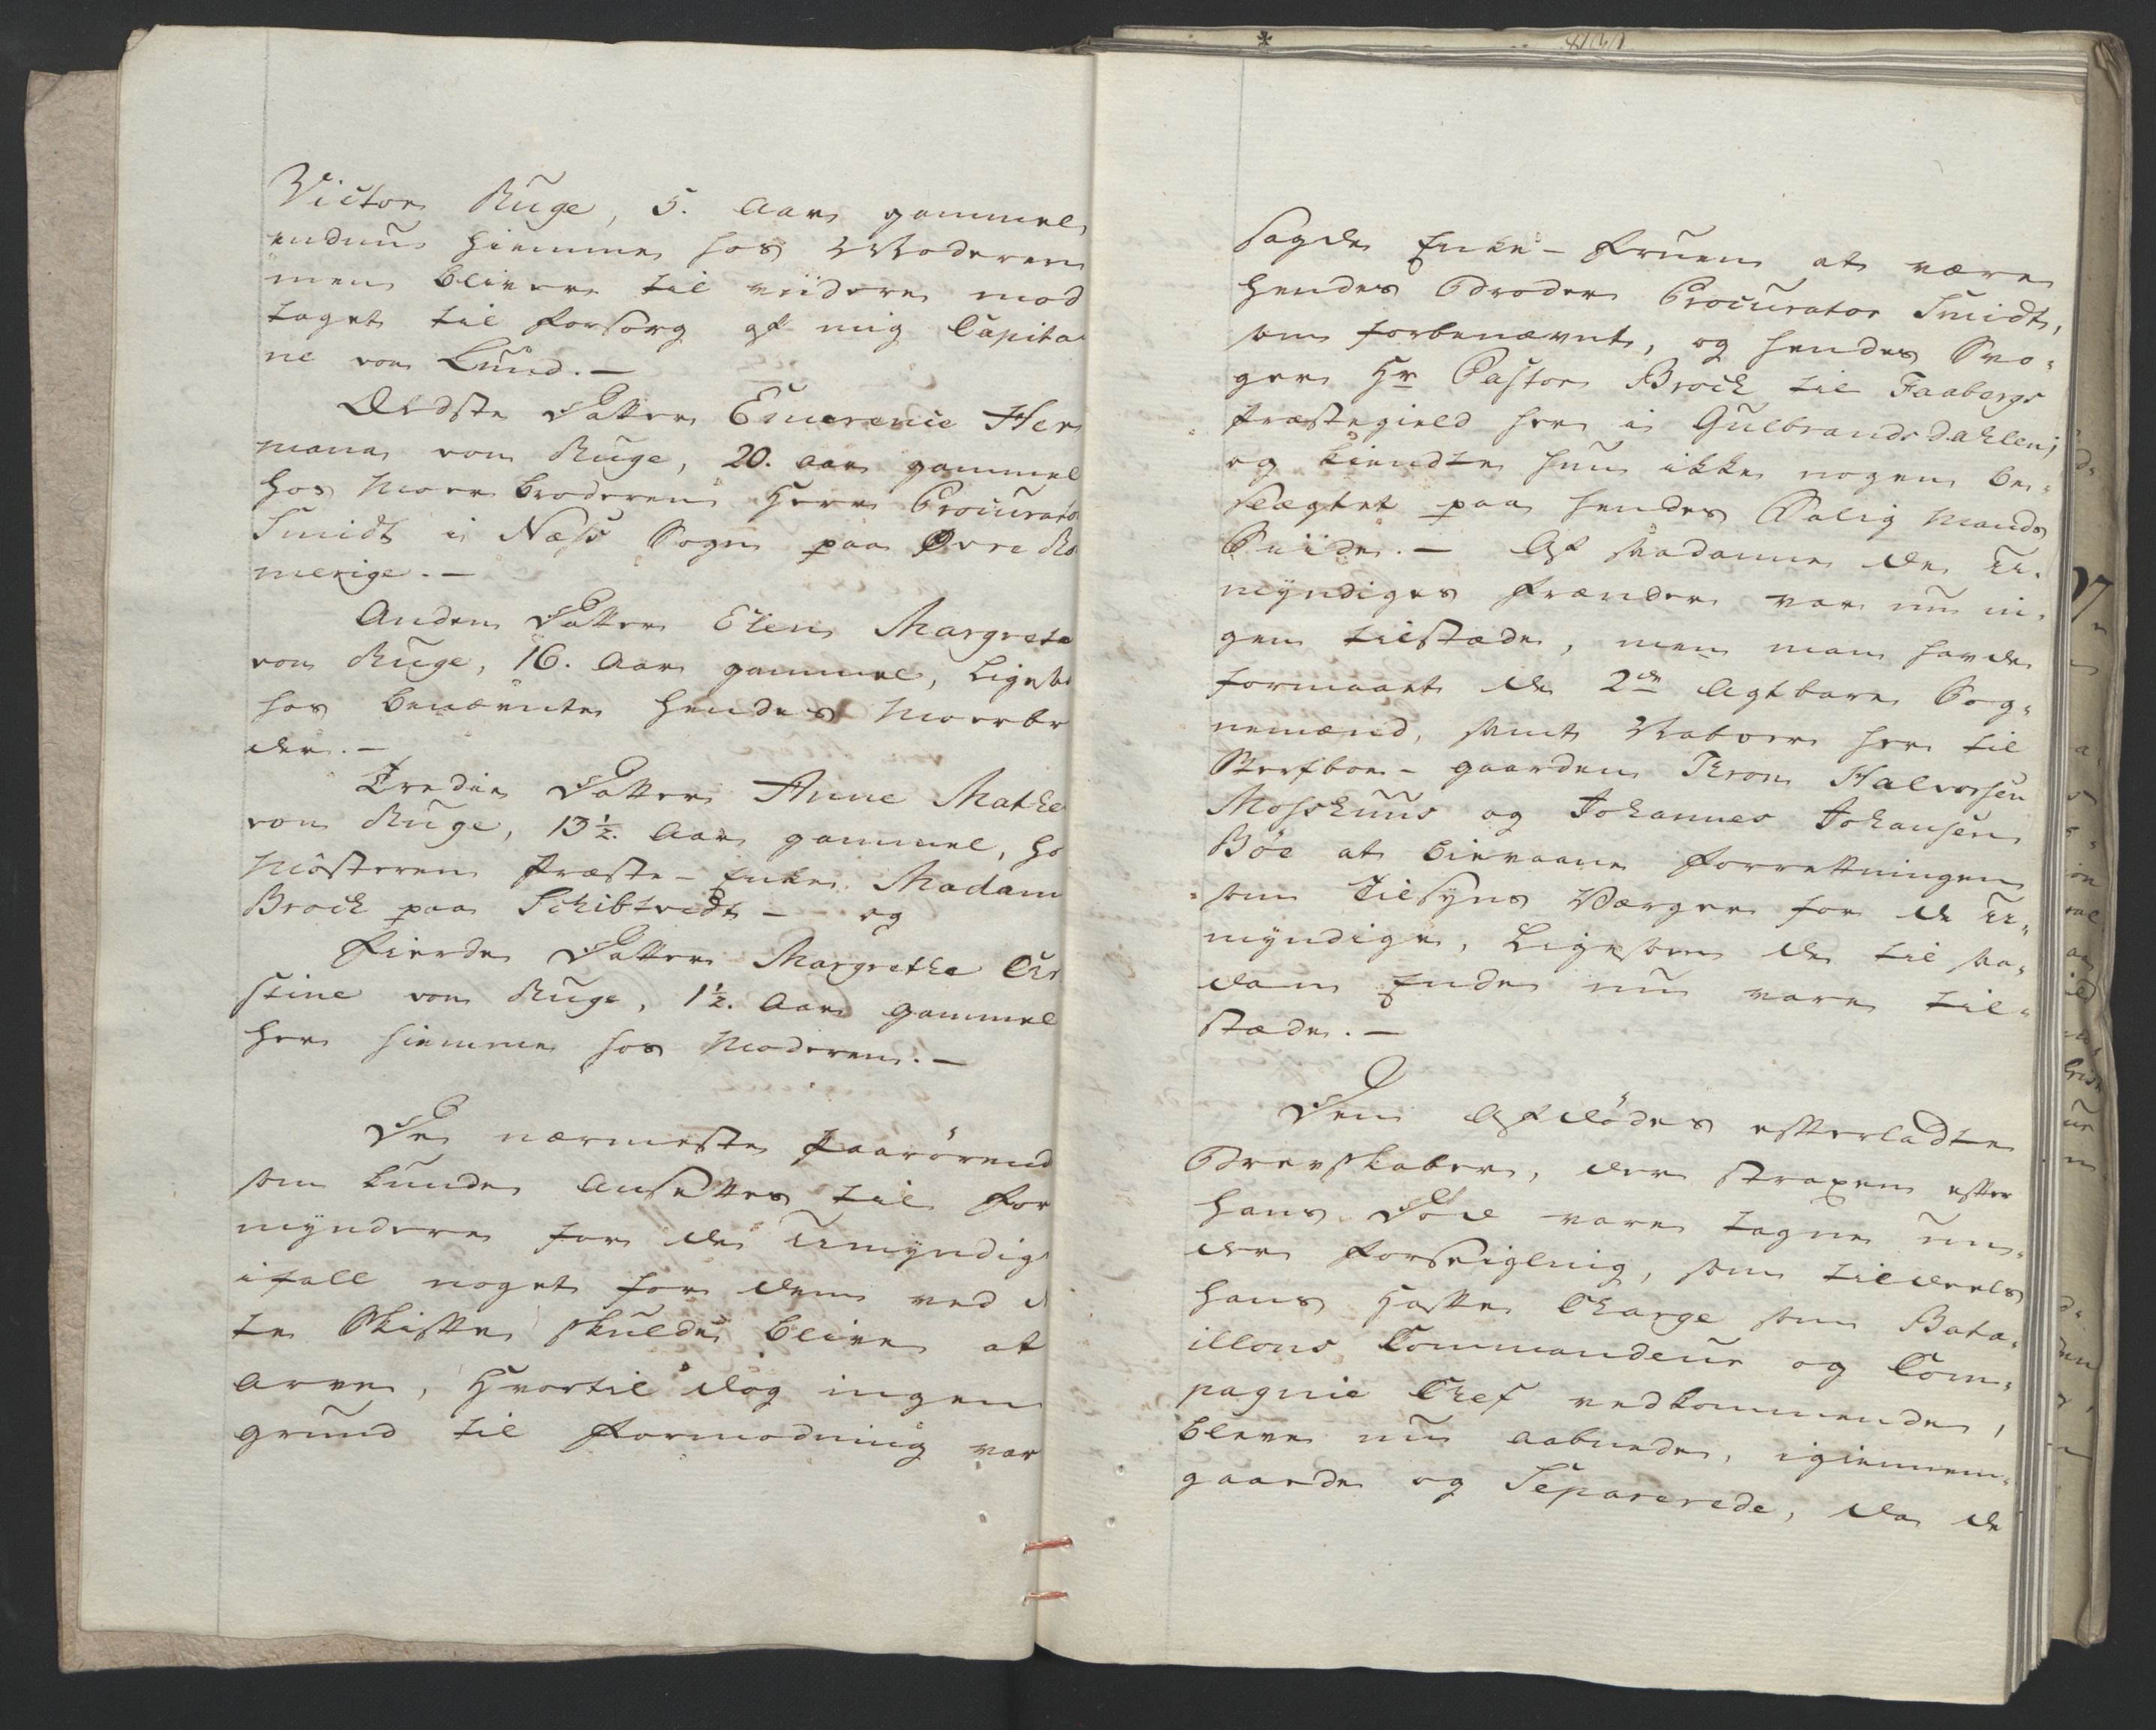 Victor Ruge, 5. Aar gammel
endnu hiemme hos Moderen
men bliver til viidere mod
taget til forsorg af mig Capitai
ne von Lund. —
Ældste Datter Emerenie Her
mana von Ruge, 20. Aar gammel
hos Moer broderen Herr Procurato
Smidt i Næss Sogn paa Øvre Ro
merige. —
Anden Datter Elen Margrete
von Ruge, 16. Aar gammel, ligele
hos benævnte hendes Moerbr
der. —
Tredie Datter Anne Mathe
von Ruge, 13½. Aar gammel, ho
Mosteren Præste-Enke Madam
Brock paa Schibtvedt — og
Fierde Datter Margrethe Chr
stine von Ruge, 1½. Aar gammel
her hiemme hos Moderen. —
De nærmeste Paarörend
som kunde ansettes til For
myndere for de Umyndige
ifall noget for dem ved d
te Skifte skulde blive at
arve, hvortil dog ingen
grund til formodning var
sagde Enke-Fruen at være
hendes Broder Procurator Smidt,
som forbenævnt, og hendes Svo-
ger Hr Pastor Brock til Faabergs
Præstegield her i Gulbrandsdahlen;
og kiendte hun ikke nogen be-
slægtet paa hendes Salig Mands
Siide. — Af saadanne de U-
myndiges Frænder var nu in-
gen tilstæde, men man havde
formaaet de 2de Agtbare Sog-
nemænd, samt Naboer her til
Sterfboe-gaarden Thron Halvorsen
Mosshuus og Johannes Johansen
Böe at bievaane Forrettningen
som Tilsyns Værger for de U-
myndige, ligesom de til saa-
dan Ende nu vare til-
stæde. —
Den Afdödes efterladte
Brevskaber, der straxen efter
hans Död vare tagne un-
der Forseigling, som tildeels
hans hafte Charge som Bata-
illons Commandeur og Com-
pagnie Chef vedkommende,
bleve nu aabnede, igiennem-
gaaede og Separerede, da de